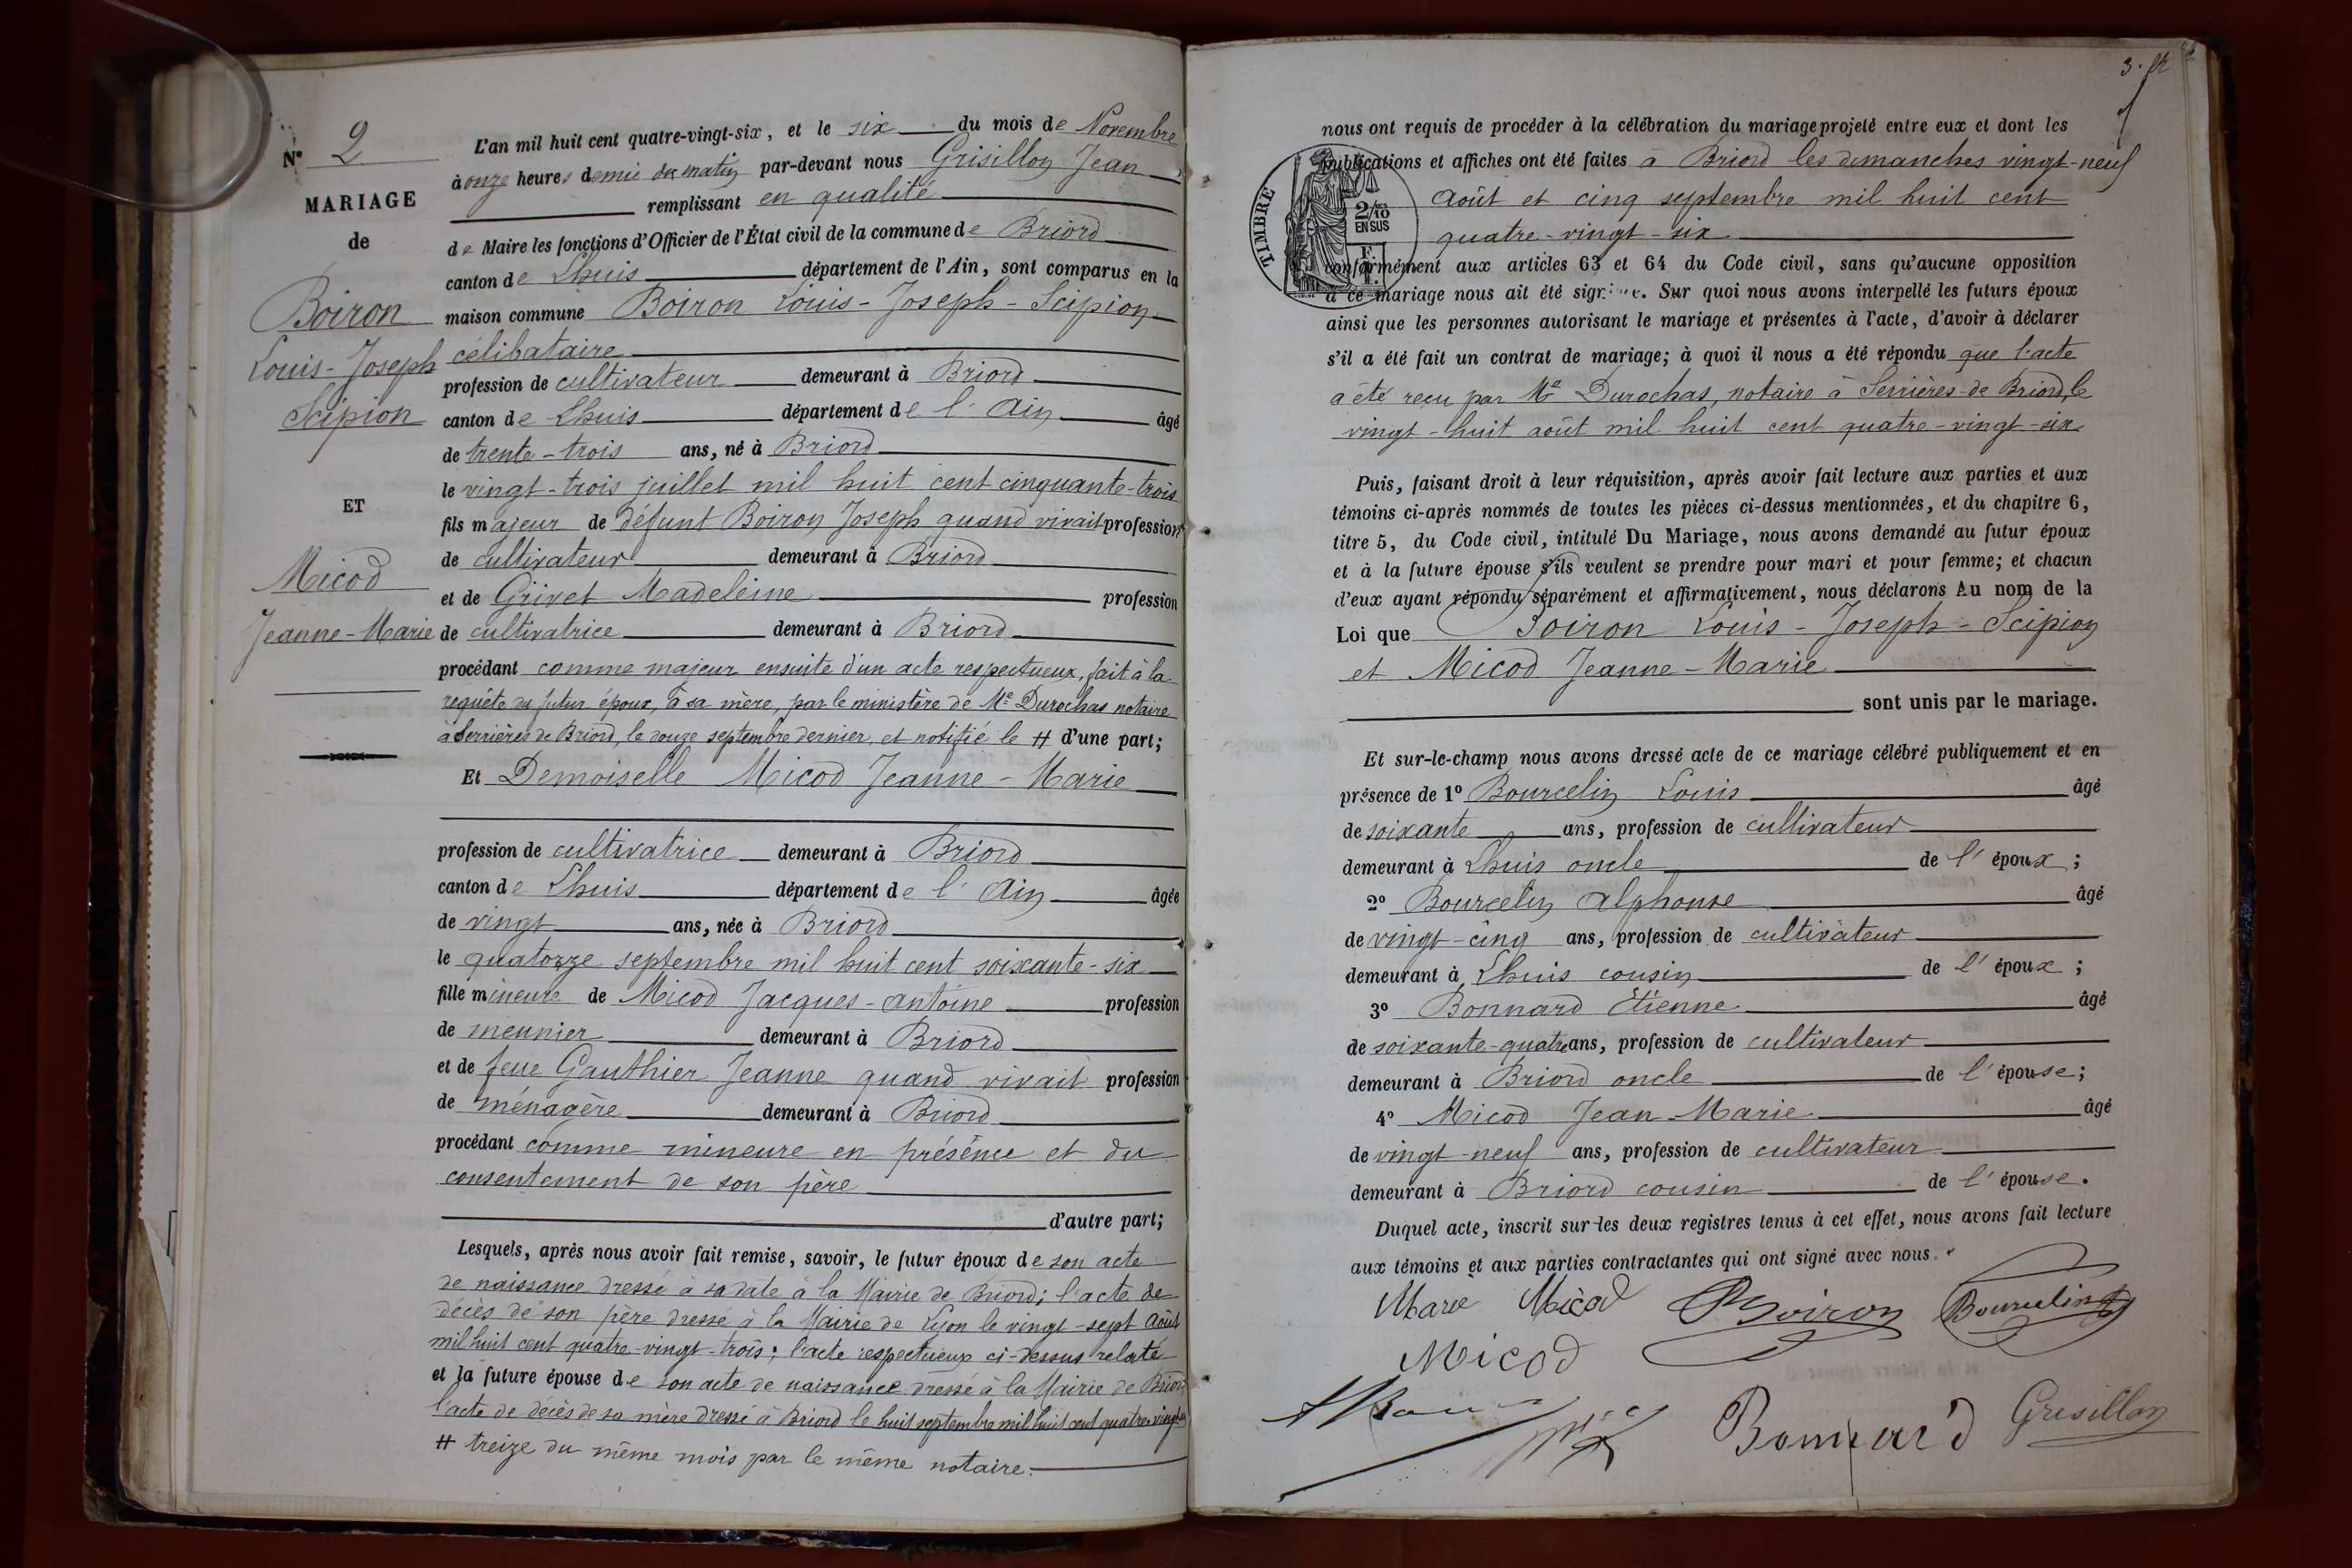 N° 2
MARIAGE
de
Boiron
Louis-Joseph
Scipion
ET
Micod
Jeanne-Marie
L'an mil huit cent quatre-vingt-six, et le six du mois de Novembre
à onze heures demie du matin par-devant nous Grisillon Jean
remplissant en qualité
de Maire les fonctions d'Officier de l'État civil de la commune de Briord
canton de Lhuis département de l'Ain, sont comparus en la
maison commune Boiron Louis-Joseph-Scipion
célibataire
profession de cultivateur demeurant à Briord
canton de Lhuis département de l'Ain âgé
de trente-trois ans, né à Briord
le vingt-trois juillet mil huit cent cinquante-trois
fils majeur de défunt Boiron Joseph quand vivait profession
de cultivateur demeurant à Briord
et de Grivet Madeleine profession
de cultivatrice demeurant à Briord
procédant comme majeur ensuite d'un acte respectueux, fait à la
requête du futur époux, à sa mère, par le ministère de Me Durochas notaire
à Serrières de Briord, le douze septembre dernier, et notifié le # d'une part;
Et Demoiselle Micod Jeanne-Marie
profession de cultivatrice demeurant à Briord
canton de Lhuis département de l'Ain âgée
de vingt ans, née à Briord
le quatorze septembre mil huit cent soixante-six
fille mineure de Micod Jacques-antoine profession
de meunier demeurant à Briord
et de feue Gauthier Jeanne quand vivait profession
de ménagère demeurant à Briord
procédant comme mineure en présence et du
consentement de son père
d'autre part;
Lesquels, après nous avoir fait remise, savoir, le futur époux de son acte
de naissance dressé à sa date à la Mairie de Briord; l'acte de
décès de son père dressé à la Mairie de Lyon le vingt-sept Août
mil huit cent quatre-vingt-trois; l'acte respectueux ci-dessus relaté
et la future épouse de son acte de naissance dressé à la Mairie de Briord
l'acte de décès de sa mère dressé à Briord le huit septembre mil huit cent quatre-vingt
# treize du même mois par le même notaire.
nous ont requis de procéder à la célébration du mariage projeté entre eux et dont les
publications et affiches ont été faites à Briord les dimanches vingt-neuf
Août et cinq septembre mil huit cent
quatre-vingt-six
TIMBRE
2/10
EN SUS
conformément aux articles 63 et 64 du Code civil, sans qu'aucune opposition
à ce mariage nous ait été signifiée. Sur quoi nous avons interpellé les futurs époux
ainsi que les personnes autorisant le mariage et présentes à l'acte, d'avoir à déclarer
s'il a été fait un contrat de mariage; à quoi il nous a été répondu que l'acte
a été reçu par Me Durochas, notaire à Serrières-de Briord, le
vingt-huit août mil huit cent quatre-vingt-six
Puis, faisant droit à leur réquisition, après avoir fait lecture aux parties et aux
témoins ci-après nommés de toutes les pièces ci-dessus mentionnées, et du chapitre 6,
titre 5, du Code civil, intitulé Du Mariage, nous avons demandé au futur époux
et à la future épouse s'ils veulent se prendre pour mari et pour femme; et chacun
d'eux ayant répondu séparément et affirmativement, nous déclarons Au nom de la
Loi que Boiron Louis-Joseph-Scipion
et Micod Jeanne-Marie
sont unis par le mariage.
Et sur-le-champ nous avons dressé acte de ce mariage célébré publiquement et en
présence de 1° Bourcelin Louis âgé
de soixante ans, profession de cultivateur
demeurant à Lhuis oncle de l'époux;
2° Bourcelin Alphonse âgé
de vingt-cinq ans, profession de cultivateur
demeurant à Lhuis cousin de l'époux;
3° Bonnard Étienne âgé
de soixante-quatre ans, profession de cultivateur
demeurant à Briord oncle de l'épouse;
4° Micod Jean-Marie âgé
de vingt-neuf ans, profession de cultivateur
demeurant à Briord cousin de l'épouse.
Duquel acte, inscrit sur les deux registres tenus à cet effet, nous avons fait lecture
aux témoins et aux parties contractantes qui ont signé avec nous.
Marie Micod Boiron Bourcelin
Micod
Bonnard Grisillon